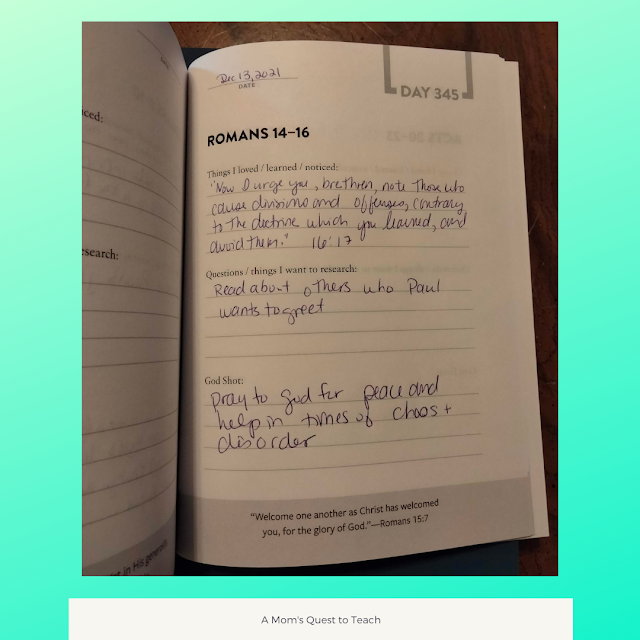 Dec 13, 2021
DATE
DAY 345
ROMANS 14–16
Things I loved / learned / noticed:
"Now I urge you, brethren, note those who
cause divisions and offenses, contrary
to the doctrine which you learned, and
avoid them." 16:17
Questions / things I want to research:
Read about others who Paul
wants to greet
God Shot:
pray to god for peace and
help in times of chaos +
disorder
"Welcome one another as Christ has welcomed
you, for the glory of God."—Romans 15:7
ced:
search:
in His generosity
A Mom's Quest to Teach